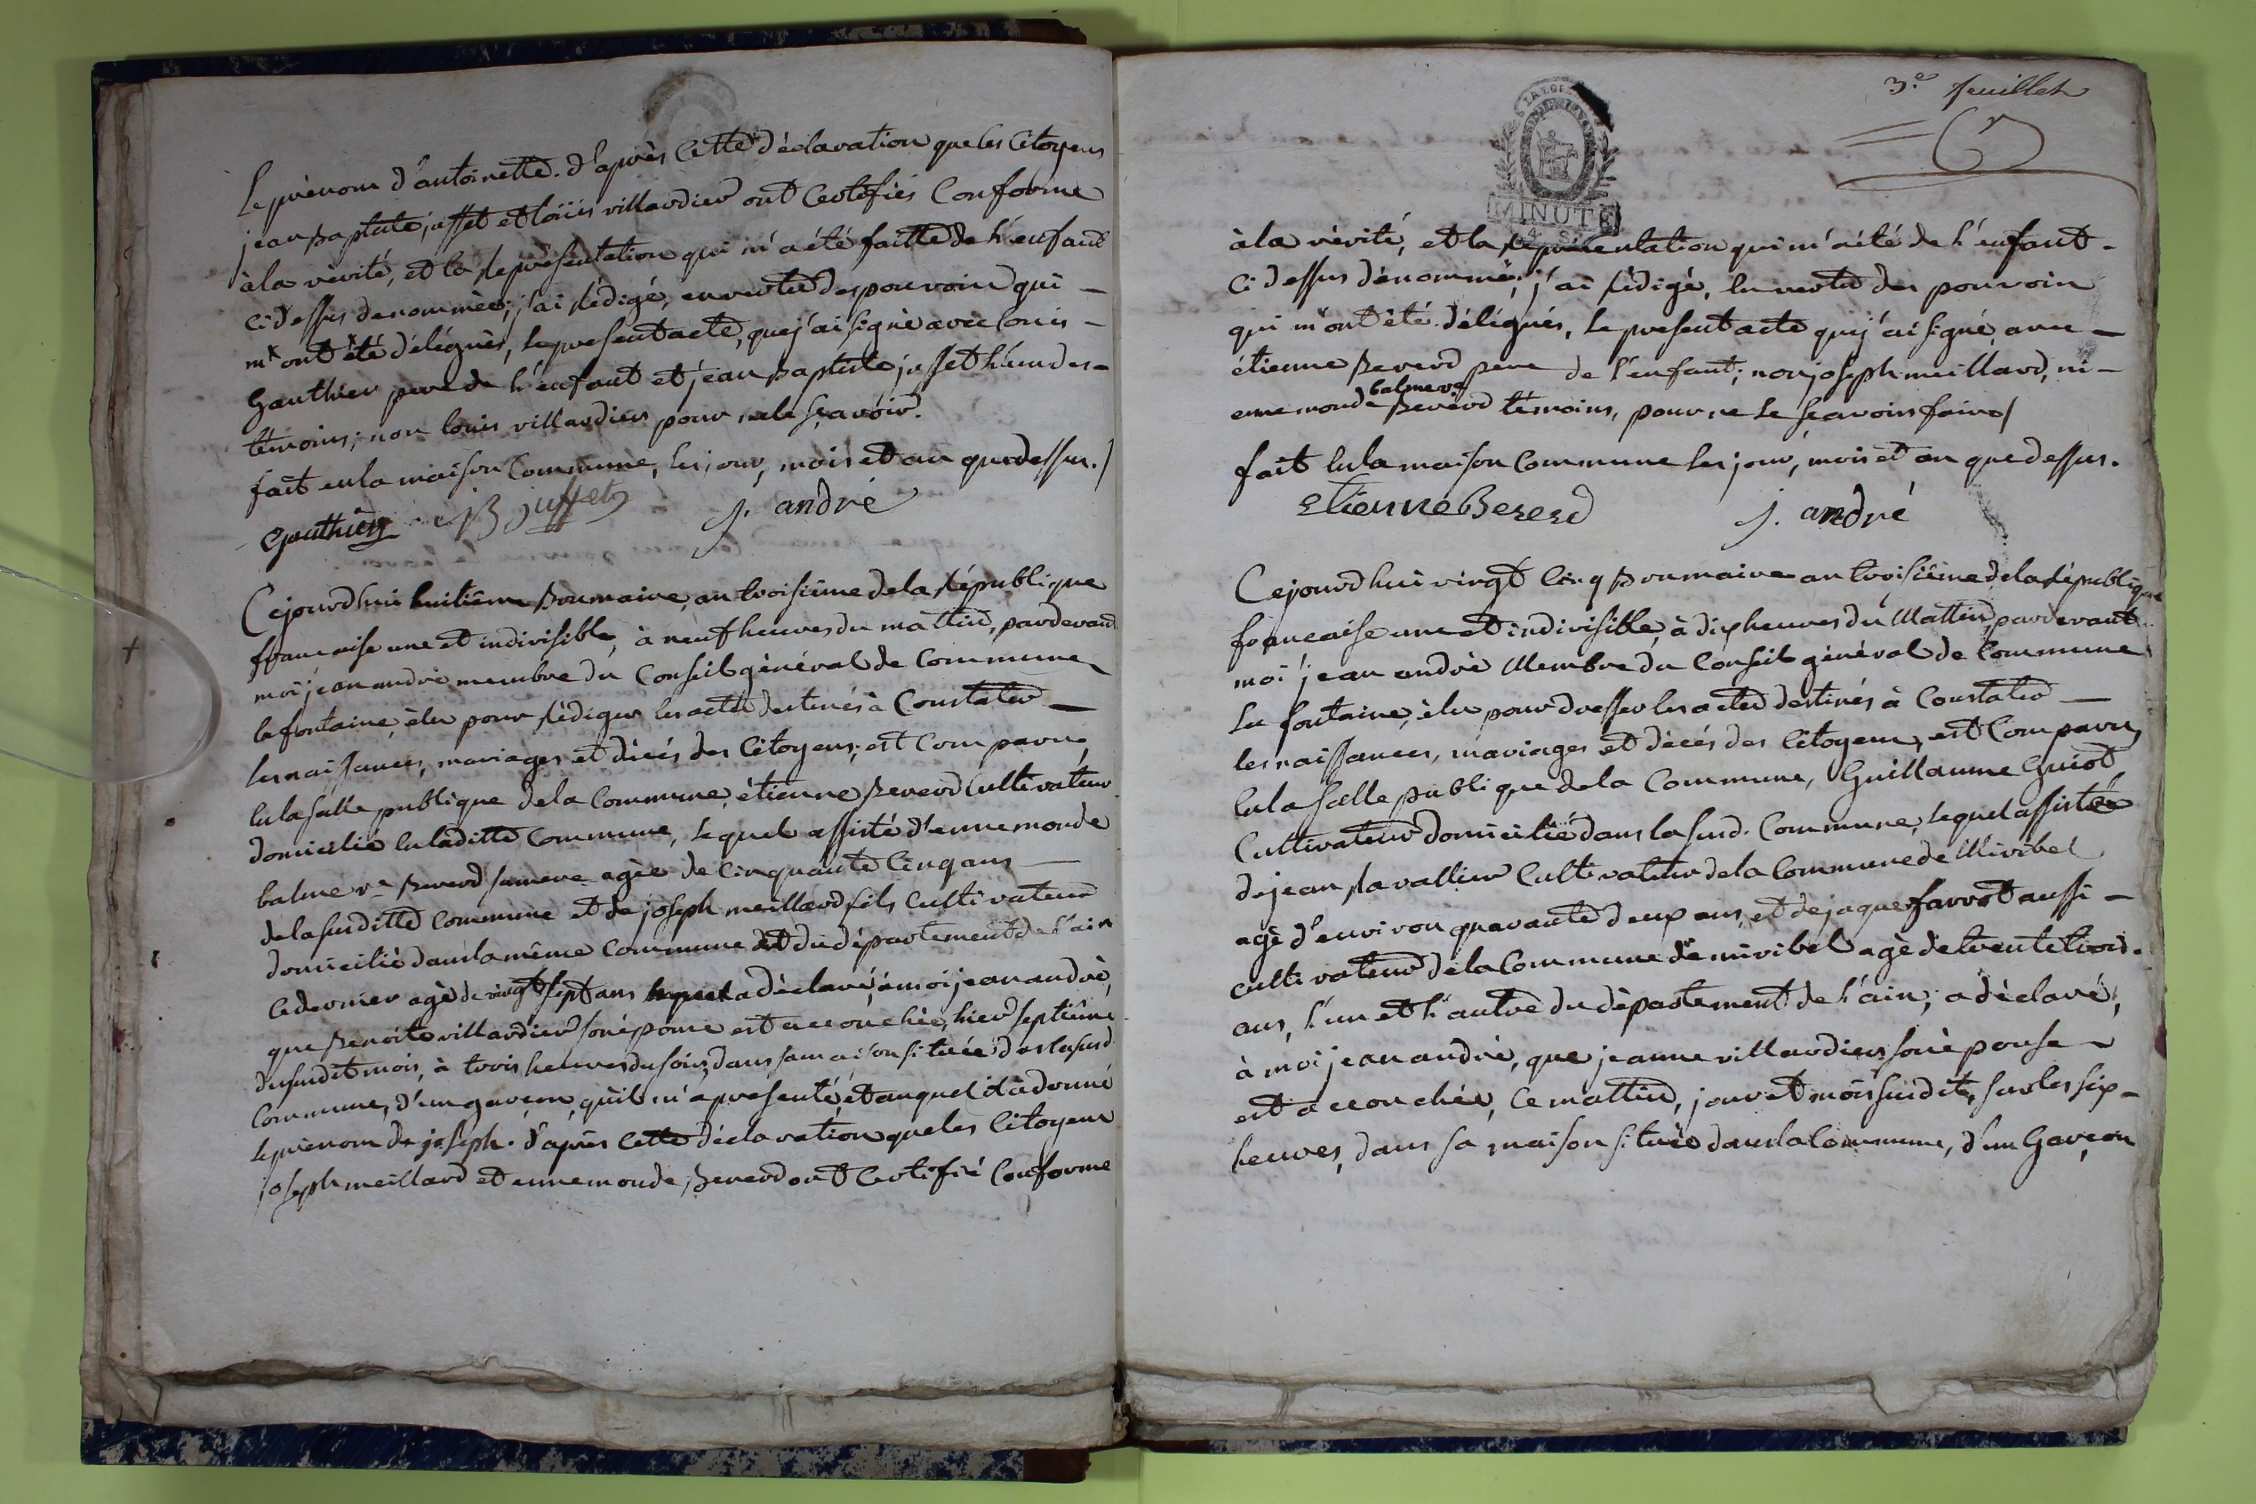 Le prénom d'antoinette. d'après Cette déclaration que les Citoyens
jean Baptiste jusset et loüis villardier ont Certifiés Conforme
à la vérité, et la représentation qui m'a été faitte de l'enfant
ci dessus denommée; j'ai rédigé, en vertu des pouvoirs qui —
m'ont été délégués, le present acte, que j'ai signé avec louis —
Gauthier pere de l'enfant et jean Baptiste jusset l'un des —
témoins; non louis villardier pour ne le sçavoir.
fait en la maison Commune, les jour, mois et an que dessus./
Gauthier JB jusset j. andré
Cejourdhui huitième Brumaire, an troisième de la république
française une et indivisible, à neuf heures du mattin, pardevant
moi jean andré membre du Conseil général de Commune
la fontaine, élu pour rédiger les actes destinés à Constater —
les naissances, mariages et décés des Citoyens; est Comparu,
en la salle publique de la Commune, étienne Bererd Cultivateur
domicilié en laditte Commune, lequel assisté d'ennemonde
balme ve Bererd sa mere agée de Cinquante Cinq ans —
de la susditte Commune et de joseph meillard fils Cultivateur
domicilié dans la même Commune et du département de l'ain
Ce dernier agé de vingt sept ans a déclaré, à moi jean andré,
que Benoite villardier son épouse est accouchée, hier septième
du susdit mois, à trois heures du soir, dans sa maison située dans la susd
Commune, d'un garçon, qu'il m'a présenté, et auquel il a donné
le prénom de joseph. d'après Cette déclaration que les Citoyens
joseph meillard et ennemonde Bererd ont Certifié Conforme
3.e feuillet
LA LOI
MINUTE
4 S.
à la vérité, et la représentation qui m'a été de l'enfant —
Ci dessus dénommé; j'ai rédigé, en vertu des pouvoirs
qui m'ont été délégués, le present acte que j'ai signé, avec —
étienne Bererd pere de l'enfant; non joseph meillard, ni —
balme ve
ennemonde Bererd témoins, pour ne le sçavoir faire/
fait en la maison Commune les jour, mois et an que dessus.
Etienne Bererd j. andré
Cejourdhui vingt Cinq Brumaire an troisième de la république
française une et indivisible, à dix heures du Mattin, pardevant
moi jean andré Membre du Conseil général de Commune
La fontaine, élu pour dresser les actes destinés à Constater —
les naissances, mariages et décés des Citoyens, est Comparu,
en la salle publique de la Commune, Guillaume Guiot
Cultivateur domicilié dans la susd. Commune, lequel assisté
de jean ravallier Cultivateur de la Commune de Miribel
agé d'environ quarante deux ans, et de jaque farrot aussi —
cultivateur de la Commune de miribel agé de trente trois.
ans, l'un et l'autre du département de l'ain; a déclaré,
à moi jean andré, que jeanne villardier son épouse
est accouchée, Ce mattin, jour et mois susdits, sur les six —
heures, dans sa maison située dans la Commune, d'un Garçon